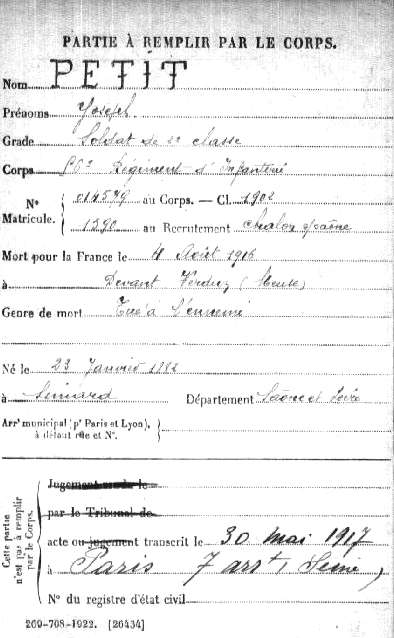 PARTIE À REMPLIR PAR LE CORPS.
Nom PETIT
Prénoms Joseph
Grade Soldat de 2e classe
Corps Régiment d'Infanterie
No 014579 au Corps. — Cl. 1902
Matricule. 1390 au Recrutement Chalon s/Saône
Mort pour la France le 4 Août 1916
à Devant Verdun (Meuse)
Genre de mort Tué à l'ennemi
Né le 23 Janvier 1882
à Simard Département Saône et Loire
Arrt municipal (pr Paris et Lyon),
à défaut rue et No.
Cette partie
n'est pas à remplir
par le Corps.
Jugement rendu le
par le Tribunal de
acte ou jugement transcrit le 30 mai 1917
à Paris 7 arrt, Seine)
No du registre d'état civil
269-708-1922. [26434]